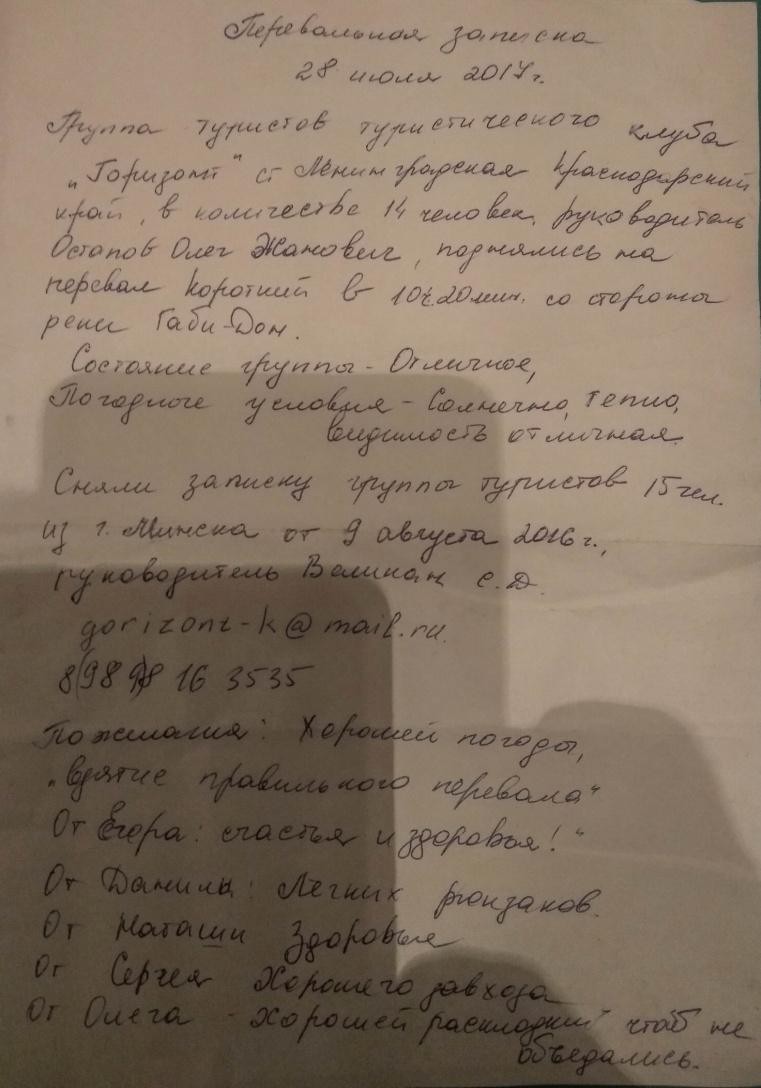 Перевальная записка
28 июля 2017г.
Группа туристов туристического клуба
„Горизонт" ст Ленинградская Краснодарский
край, в количестве 14 человек, руководитель
Остапов Олег Жанович, поднялись на
перевал Короткий в 10ч.20мин. со стороны
реки Габи-Дон.
Состояние группы - Отличное,
Погодные условия - Солнечно, тепло,
видимость отличная.
Сняли записку группы туристов 15чел.
из г. Минска от 9 августа 2016г.,
руководитель С.Д.
gorizont-k@mail.ru.
8(989)8 16 3535
Пожелания: Хорошей погоды,
„взятие правильного перевала"
От Егора: счастья и здоровья!"
От Данилы: Легких рюкзаков.
От Наташи Здоровья
От Сергея Хорошего завхоза
От Олега - Хорошей раскладки чтоб не
объедались.